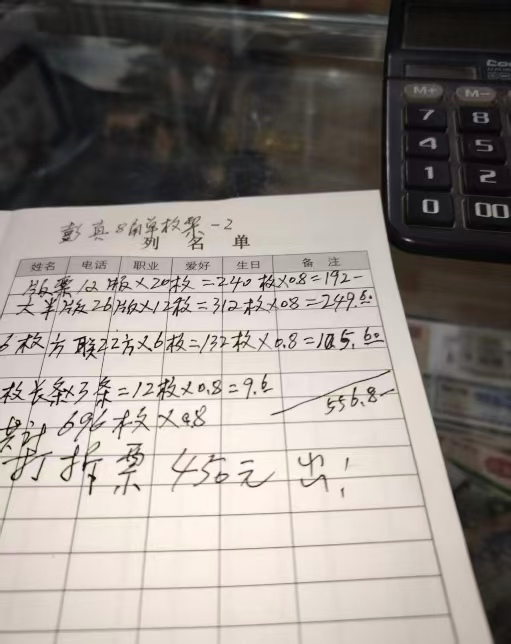 彭真8角单枚票-2
列名单
姓名 电话 职业 爱好 生日 备注
版票12版×20枚=240枚×08=192-
大半版26版×12枚=312枚×08=249.60
6枚方联22方×6枚=132枚×0.8=105.60
枚长条×3条=12枚×0.8=9.6
556.8-
共计 696枚×0.8
打折票 450元 出!
M+ M-
7 8
4 5
1 2
0 00